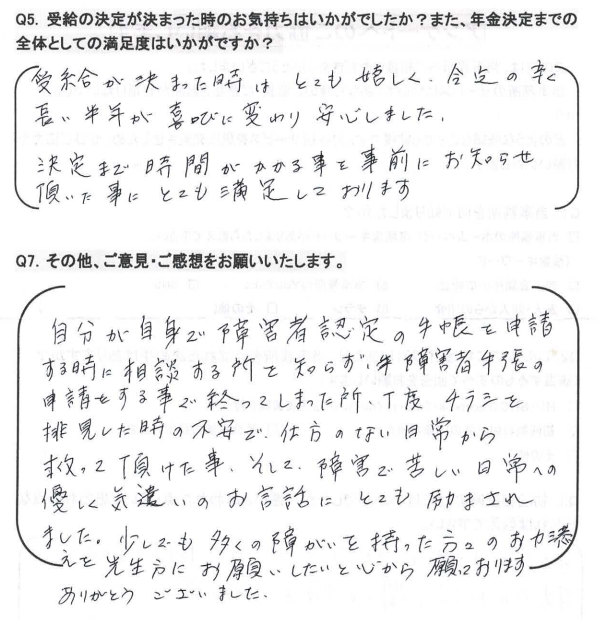 Q5. 受給の決定が決まった時のお気持ちはいかがでしたか？また、年金決定までの
全体としての満足度はいかがですか？
受給が決まった時は とても嬉しく、今迄の辛く
長い半年が喜びに変わり安心しました。
決定まで時間がかかる事を事前にお知らせ
頂いた事にとても満足しております
Q7. その他、ご意見・ご感想をお願いいたします。
自分が自身で障害者認定の手帳を申請
する時に相談する所を知らず、障害者手張の
申請をする事で終ってしまった所、丁度チラシを
拝見した時の不安で、仕方のない日常から
救って頂けた事、そして、障害で苦しい日常への
優しく気遣いのお言話にとても励まされ
ました。少しでも多くの障がいを持った方々のお力添
えを先生方にお願いしたいと心から願っております
ありがとうございました。